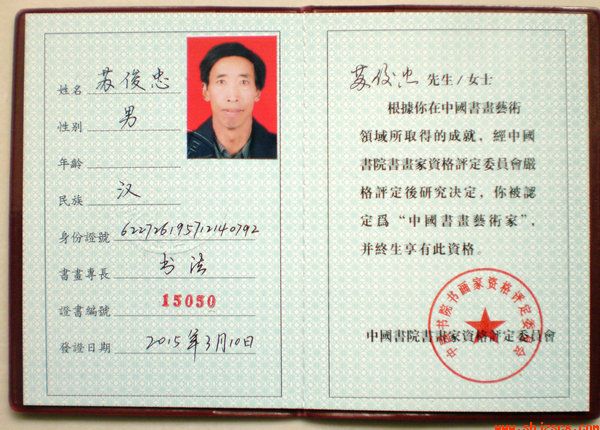 姓名 苏俊忠
性别 男
年龄
民族 汉
身份證號 622726195712140792
書畫專長 书法
證書編號 15050
發證日期 2015年3月10日
苏俊忠 先生/女士
根據你在中國書畫藝術
領域所取得的成就，經中國
書院書畫家資格評定委員會嚴
格評定後研究決定，你被認
定爲“中國書畫藝術家”，
并終生享有此資格。
中国书院书画家资格评定委员会
中國書院書畫家資格評定委員會